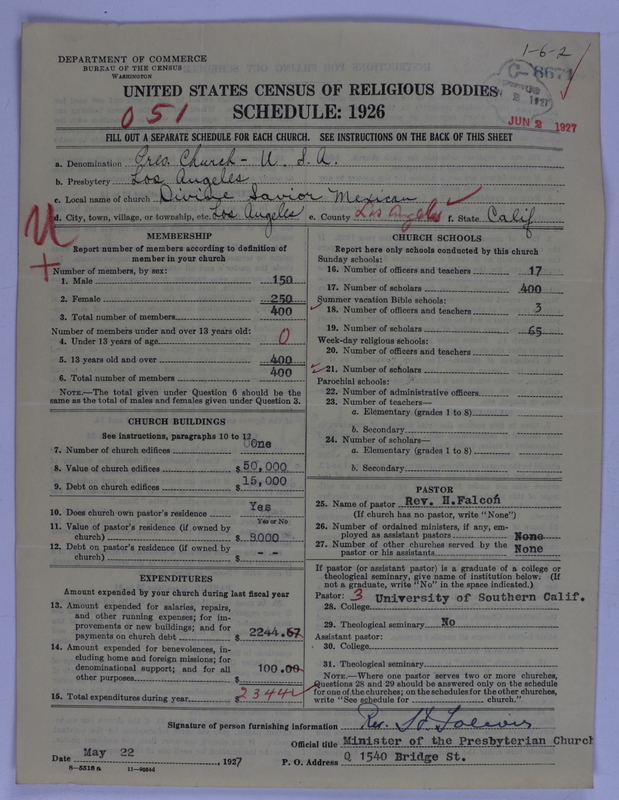 1-6-2
DEPARTMENT OF COMMERCE
BUREAU OF THE CENSUS
WASHINGTON
C-8671
JUN 2 1927
UNITED STATES CENSUS OF RELIGIOUS BODIES
051
SCHEDULE: 1926
FILL OUT A SEPARATE SCHEDULE FOR EACH CHURCH. SEE INSTRUCTIONS ON THE BACK OF THIS SHEET
a. Denomination Pres. Church - U. S. A.
b. Presbytery Los Angeles
c. Local name of church Divine Savior Mexican
d. City, town, village, or township, etc. Los Angeles e. County Los Angeles f. State Calif
MEMBERSHIP
Report number of members according to definition of
member in your church
Number of members, by sex:
1. Male 150
2. Female 250
3. Total number of members 400
Number of members under and over 13 years old:
4. Under 13 years of age 0
5. 13 years old and over 400
6. Total number of members 400
NOTE.—The total given under Question 6 should be the
same as the total of males and females given under Question 3.
CHURCH BUILDINGS
See instructions, paragraphs 10 to 12
7. Number of church edifices One
8. Value of church edifices $50,000
9. Debt on church edifices $15,000
10. Does church own pastor's residence Yes
Yes or No
11. Value of pastor's residence (if owned by
church) $ 8000
12. Debt on pastor's residence (if owned by
church) $ - -
EXPENDITURES
Amount expended by your church during last fiscal year
13. Amount expended for salaries, repairs,
and other running expenses; for im-
provements or new buildings; and for
payments on church debt $ 2244.67
14. Amount expended for benevolences, in-
cluding home and foreign missions; for
denominational support; and for all
other purposes $ 100.00
15. Total expenditures during year $ 2344
CHURCH SCHOOLS
Report here only schools conducted by this church
Sunday schools:
16. Number of officers and teachers 17
17. Number of scholars 400
Summer vacation Bible schools:
18. Number of officers and teachers 3
19. Number of scholars 65
Week-day religious schools:
20. Number of officers and teachers
21. Number of scholars
Parochial schools:
22. Number of administrative officers
23. Number of teachers—
a. Elementary (grades 1 to 8)
b. Secondary
24. Number of scholars—
a. Elementary (grades 1 to 8)
b. Secondary
PASTOR
25. Name of pastor Rev. H.Falcon
(If church has no pastor, write "None")
26. Number of ordained ministers, if any, em-
ployed as assistant pastors None
27. Number of other churches served by the
pastor or his assistants None
If pastor (or assistant pastor) is a graduate of a college or
theological seminary, give name of institution below: (If
not a graduate, write "No" in the space indicated.)
Pastor: 3 University of Southern Calif.
28. College
29. Theological seminary No
Assistant pastor:
30. College
31. Theological seminary
NOTE.—Where one pastor serves two or more churches,
Questions 28 and 29 should be answered only on the schedule
for one of the churches; on the schedules for the other churches,
write "See schedule for church."
Signature of person furnishing information Rev. H. Falcon
Official title Minister of the Presbyterian Church
Date May 22, 1927 P. O. Address Q 1540 Bridge St.
8-5518 a